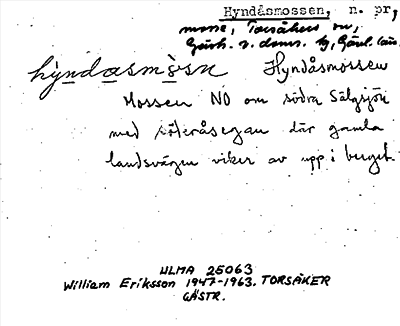 Hyndåsmossen, n. pr,
mosse, Torsåkers sn,
Gästr. ö. doms. hg, Gävl. län.
hyndasmòsn Hyndåsmossen
Mossen NO om södra Sälgsjön
med söteråsegan där gamla
landsvägen viker av upp i berget
ULMA 25063
William Eriksson 1947-1963. TORSÅKER
GÄSTR.